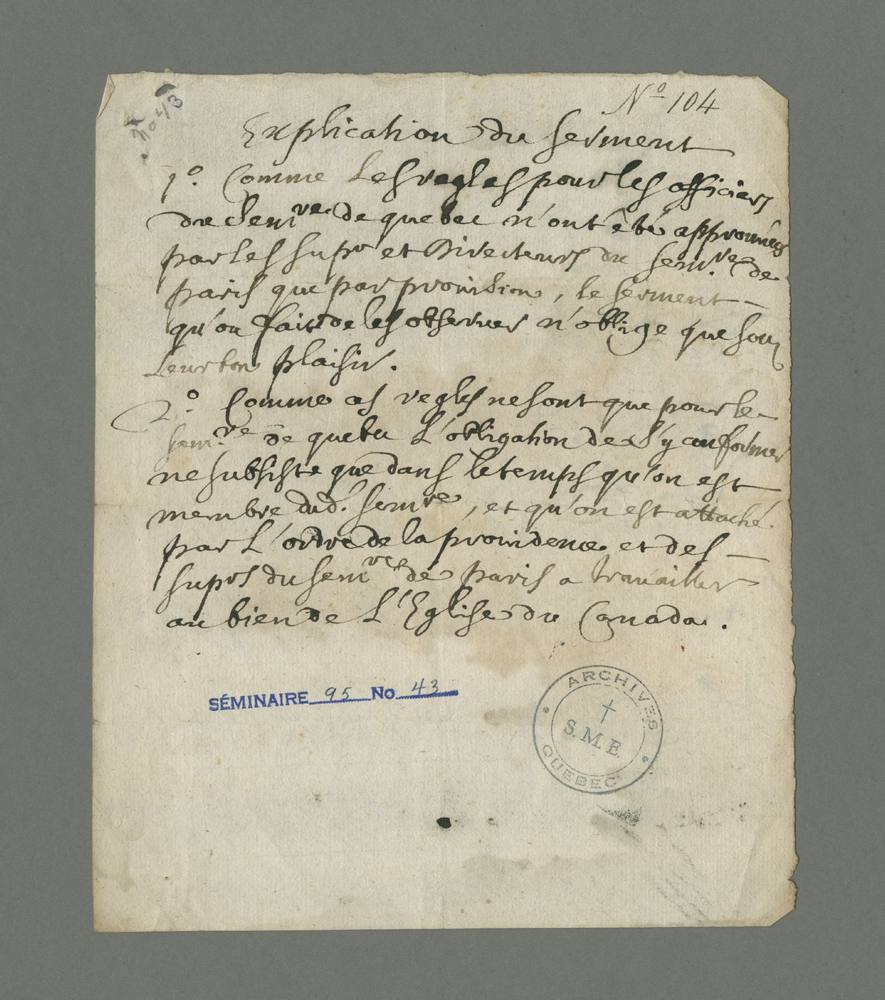 No 43
No 104
Explication du serment
1o. Comme les regles pour les officiers
du Semre de quebec n'ont êté approuvées
par les suprs et Directeurs du Semre de
paris que par provision, le serment
qu'on fait de les observer n'oblige que sous
leur bon plaisir.
2o. Comme ces regles ne sont que pour le
semre de quebec L'obligation de s'y conformer
ne subsiste que dans le temps qu'on est
membre dud. semre, et qu'on est attaché
par L'ordre de la providence et des
suprs du semre de paris a travailler
au bien de L'Eglise du Canada.
SÉMINAIRE 95 No 43
ARCHIVES
S.M.E.
QUEBEC